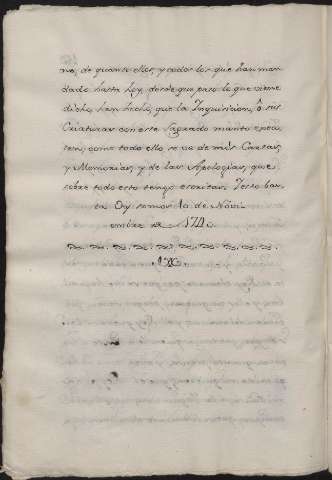 no, de quantos ellos, y todos los que han man
dado hasta hoy, desde que paso lo que viene
dicho, han hecho, que la Inquisicion, ô sus
Criaturas con este Sagrado manto
ten, como todo ello se ve de mis Cartas,
y Memorias, y de las Apologias, que
sobre todo esto tengo escritas. Y esto bas
ta Oy somos 10 de Novi
embre de